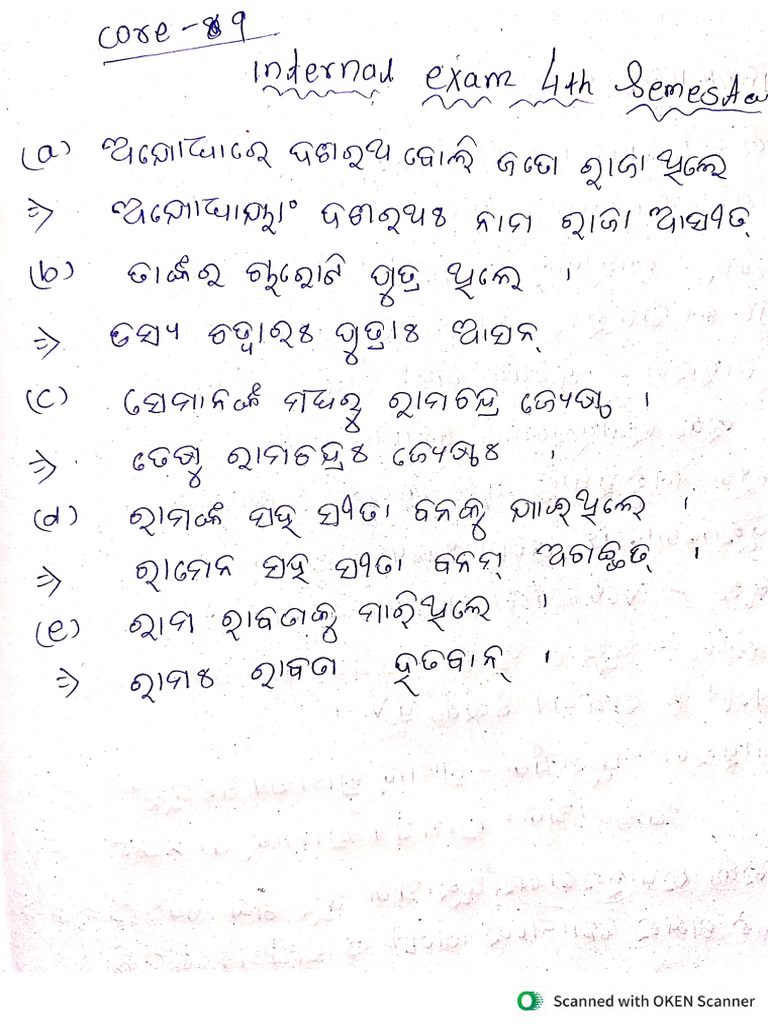 Core - 9
Internal exam 4th Semester
(a) ଅଯୋଧାରେ ଦଶରଥ ବୋଲି ଜଣେ ରାଜା ଥିଲେ
⇒ ଅଯୋଧାୟାଂ ଦଶରଥଃ ନାମ ରାଜା ଆସୀତ୍
(b) ତାଙ୍କର ଚାରୋଟି ପୁତ୍ର ଥିଲେ ।
⇒ ତସ୍ୟ ଚତ୍ୱାରଃ ପୁତ୍ରାଃ ଆସନ୍
(c) ସେମାନଙ୍କ ମଧରୁ ରାମଚନ୍ଦ୍ର ଜ୍ୟେଷ୍ଠ ।
⇒ ତେଷୁ ରାମଚନ୍ଦ୍ରଃ ଜ୍ୟେଷ୍ଠଃ ।
(d) ରାମଙ୍କ ସହ ସୀତା ବନକୁ ଯାଇଥିଲେ ।
⇒ ରାମେନ ସହ ସୀତା ବନମ୍ ଅଗଚ୍ଛତ୍ ।
(e) ରାମ ରାବଣକୁ ମାରିଥିଲେ ।
⇒ ରାମଃ ରାବଣ ହୃତବାନ୍ ।
Scanned with OKEN Scanner